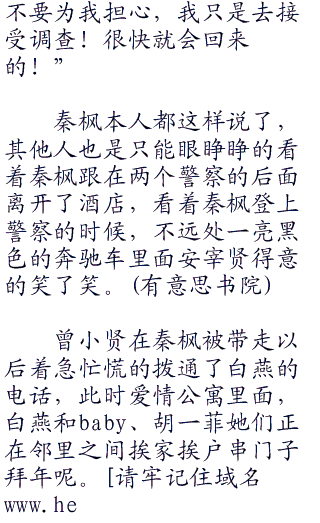 不要为我担心，我只是去接
受调查！很快就会回来
的！”
秦枫本人都这样说了，
其他人也是只能眼睁睁的看
着秦枫跟在两个警察的后面
离开了酒店，看着秦枫登上
警察的时候，不远处一亮黑
色的奔驰车里面安宰贤得意
的笑了笑。(有意思书院)
曾小贤在秦枫被带走以
后着急忙慌的拨通了白燕的
电话，此时爱情公寓里面，
白燕和baby、胡一菲她们正
在邻里之间挨家挨户串门子
拜年呢。[请牢记住域名
www.he